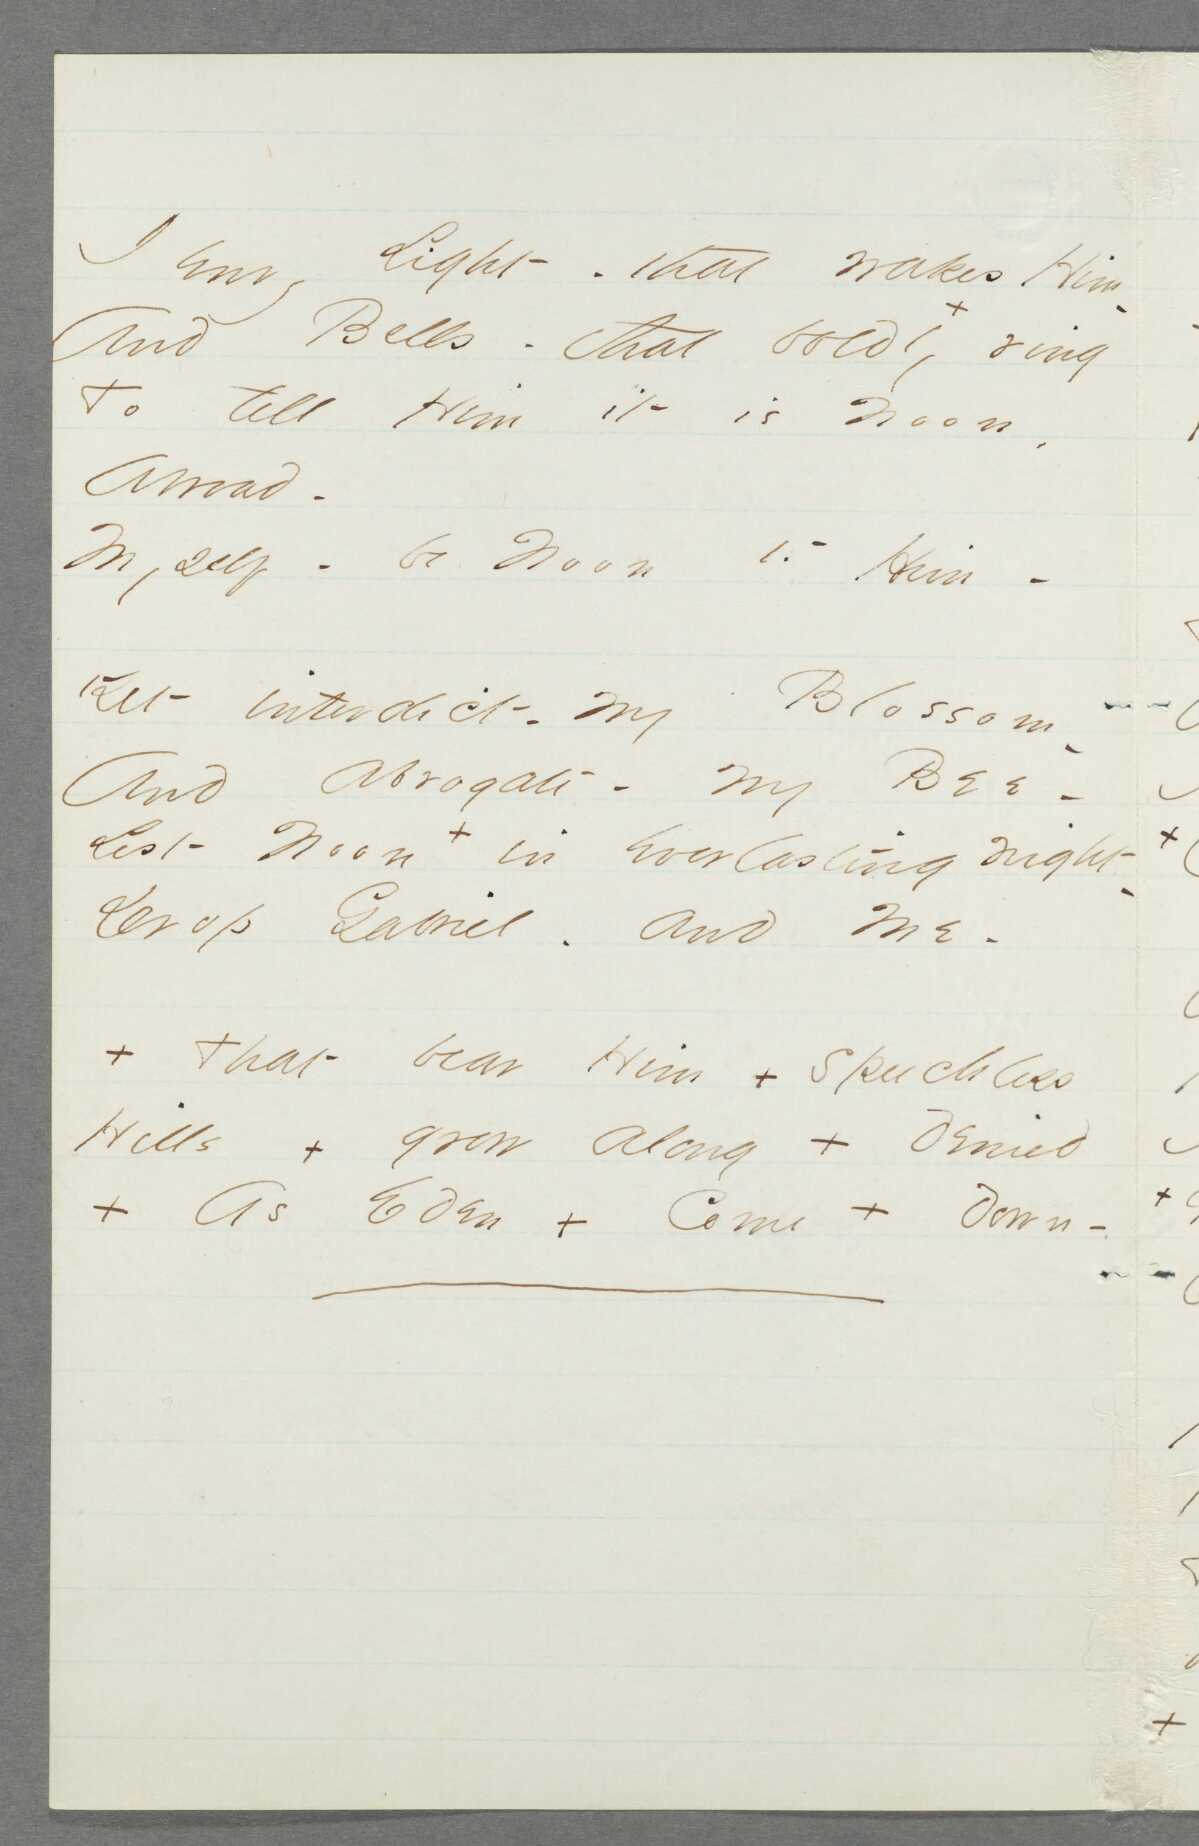 I envy Light - that wakes Him -
And Bells - that boldly + ring
To tell Him it is Noon,
Abroad -
Myself - be Noon to Him -
Yet interdict - my Blossom -
And abrogate - my Bee -
Lest Noon + in Everlasting night -
Drop Gabriel - and Me -
+ that bear Him + Speechless
Hills + grow along + denied
+ As Eden + Come + down -